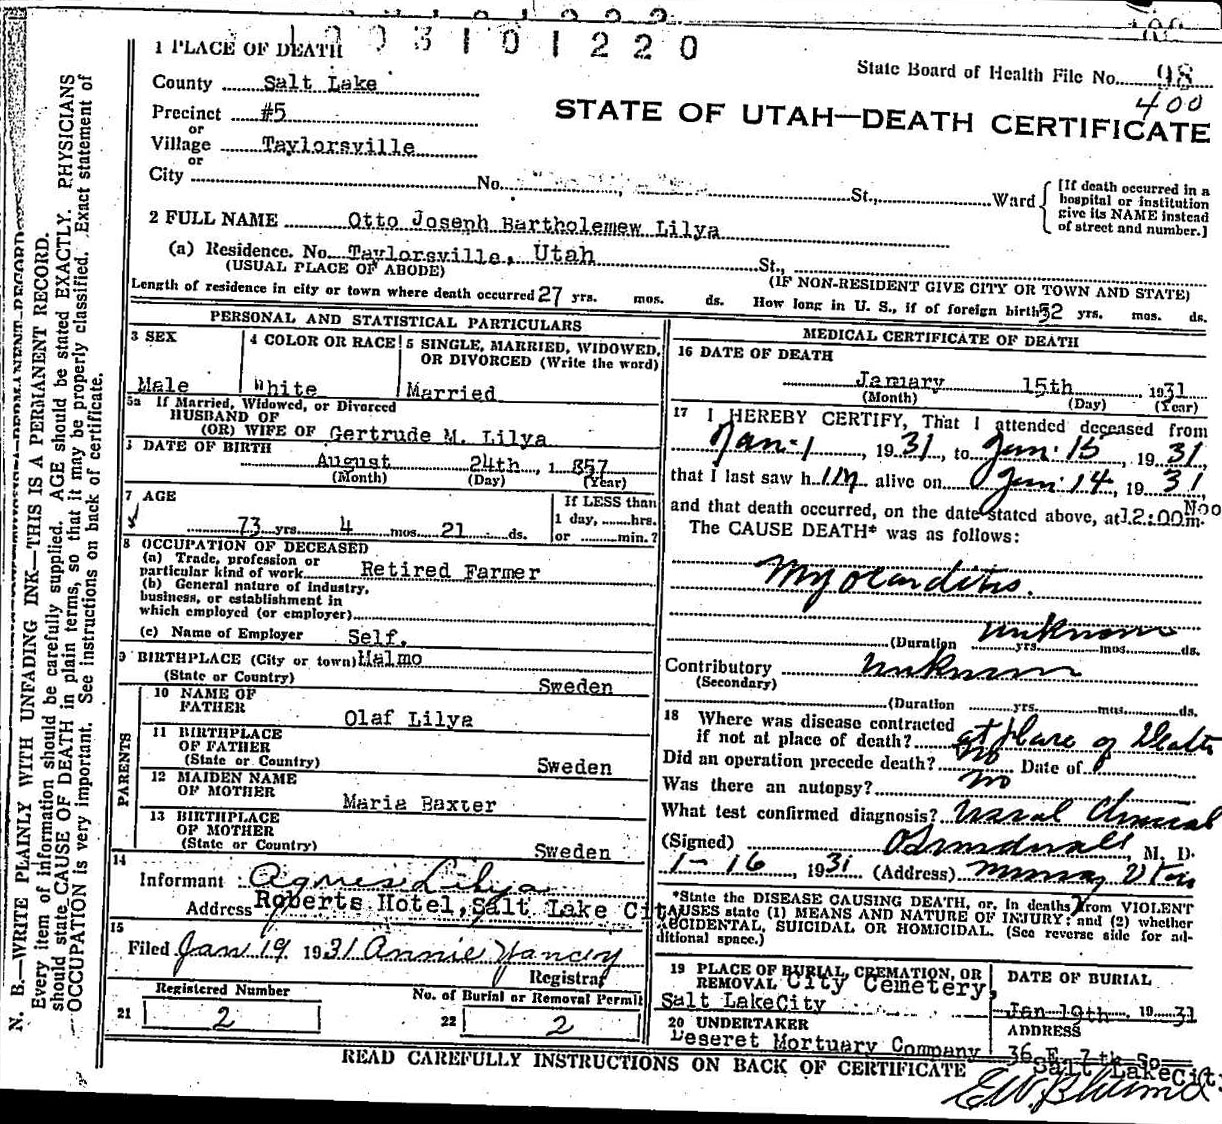 1003101220
1 PLACE OF DEATH
State Board of Health File No. 98
400
County Salt Lake
Precinct #5
or
Village Taylorsville
or
City No. St., Ward
[If death occurred in a
hospital or institution
give its NAME instead
of street and number.]
STATE OF UTAH—DEATH CERTIFICATE
2 FULL NAME Otto Joseph Bartholemew Lilya
(a) Residence. No. Taylorsville, Utah St.,
(USUAL PLACE OF ABODE) (IF NON-RESIDENT GIVE CITY OR TOWN AND STATE)
Length of residence in city or town where death occurred 27 yrs. mos. ds. How long in U. S., if of foreign birth 52 yrs. mos. ds.
PERSONAL AND STATISTICAL PARTICULARS
3 SEX
Male
4 COLOR OR RACE
White
5 SINGLE, MARRIED, WIDOWED,
OR DIVORCED (Write the word)
Married
5a If Married, Widowed, or Divorced
HUSBAND OF
(OR) WIFE OF Gertrude M. Lilya
DATE OF BIRTH
August 24th, 1 857
(Month) (Day) (Year)
7 AGE
73 yrs. 4 mos. 21 ds.
If LESS than
1 day, hrs.
or min.?
8 OCCUPATION OF DECEASED
(a) Trade, profession or
particular kind of work Retired Farmer
(b) General nature of industry,
business, or establishment in
which employed (or employer)
(c) Name of Employer Self.
9 BIRTHPLACE (City or town) Malmo
(State or Country) Sweden
PARENTS
10 NAME OF
FATHER Olaf Lilya
11 BIRTHPLACE
OF FATHER
(State or Country) Sweden
12 MAIDEN NAME
OF MOTHER Maria Baxter
13 BIRTHPLACE
OF MOTHER
(State or Country) Sweden
14
Informant Agnes Lilya
Address Roberts Hotel, Salt Lake City
15
Filed Jan 19 1931 Annie Yancey
Registrar
Registered Number
21 2
No. of Burial or Removal Permit
22 2
MEDICAL CERTIFICATE OF DEATH
16 DATE OF DEATH
January 15th 1931
(Month) (Day) (Year)
17 I HEREBY CERTIFY, That I attended deceased from
Jan-1, 1931, to Jan. 15, 1931,
that I last saw h im alive on Jan. 14, 1931,
and that death occurred, on the date stated above, at 12:00 m. Noo
The CAUSE DEATH* was as follows:
Myocarditis.
unknown
(Duration yrs. mos. ds.
Contributory unknown
(Secondary)
(Duration yrs. mos. ds.
18 Where was disease contracted
if not at place of death? at place of Death
Did an operation precede death? no Date of
Was there an autopsy? no
What test confirmed diagnosis? Usual Clinical
(Signed) M. D.
1-16, 1931 (Address) Murray Utah
*State the DISEASE CAUSING DEATH, or, in deaths from VIOLENT
CAUSES state (1) MEANS AND NATURE OF INJURY; and (2) whether
ACCIDENTAL, SUICIDAL OR HOMICIDAL. (See reverse side for ad-
ditional space.)
19 PLACE OF BURIAL, CREMATION, OR
REMOVAL City Cemetery,
Salt LakeCity
DATE OF BURIAL
Jan 19th, 1931
20 UNDERTAKER
Deseret Mortuary Company
ADDRESS
36 E. 7th So
Salt LakeCity.
READ CAREFULLY INSTRUCTIONS ON BACK OF CERTIFICATE
N. B.—WRITE PLAINLY WITH UNFADING INK—THIS IS A PERMANENT RECORD.
Every item of information should be carefully supplied. AGE should be stated EXACTLY. PHYSICIANS
should state CAUSE OF DEATH in plain terms, so that it may be properly classified. Exact statement of
OCCUPATION is very important. See instructions on back of certificate.